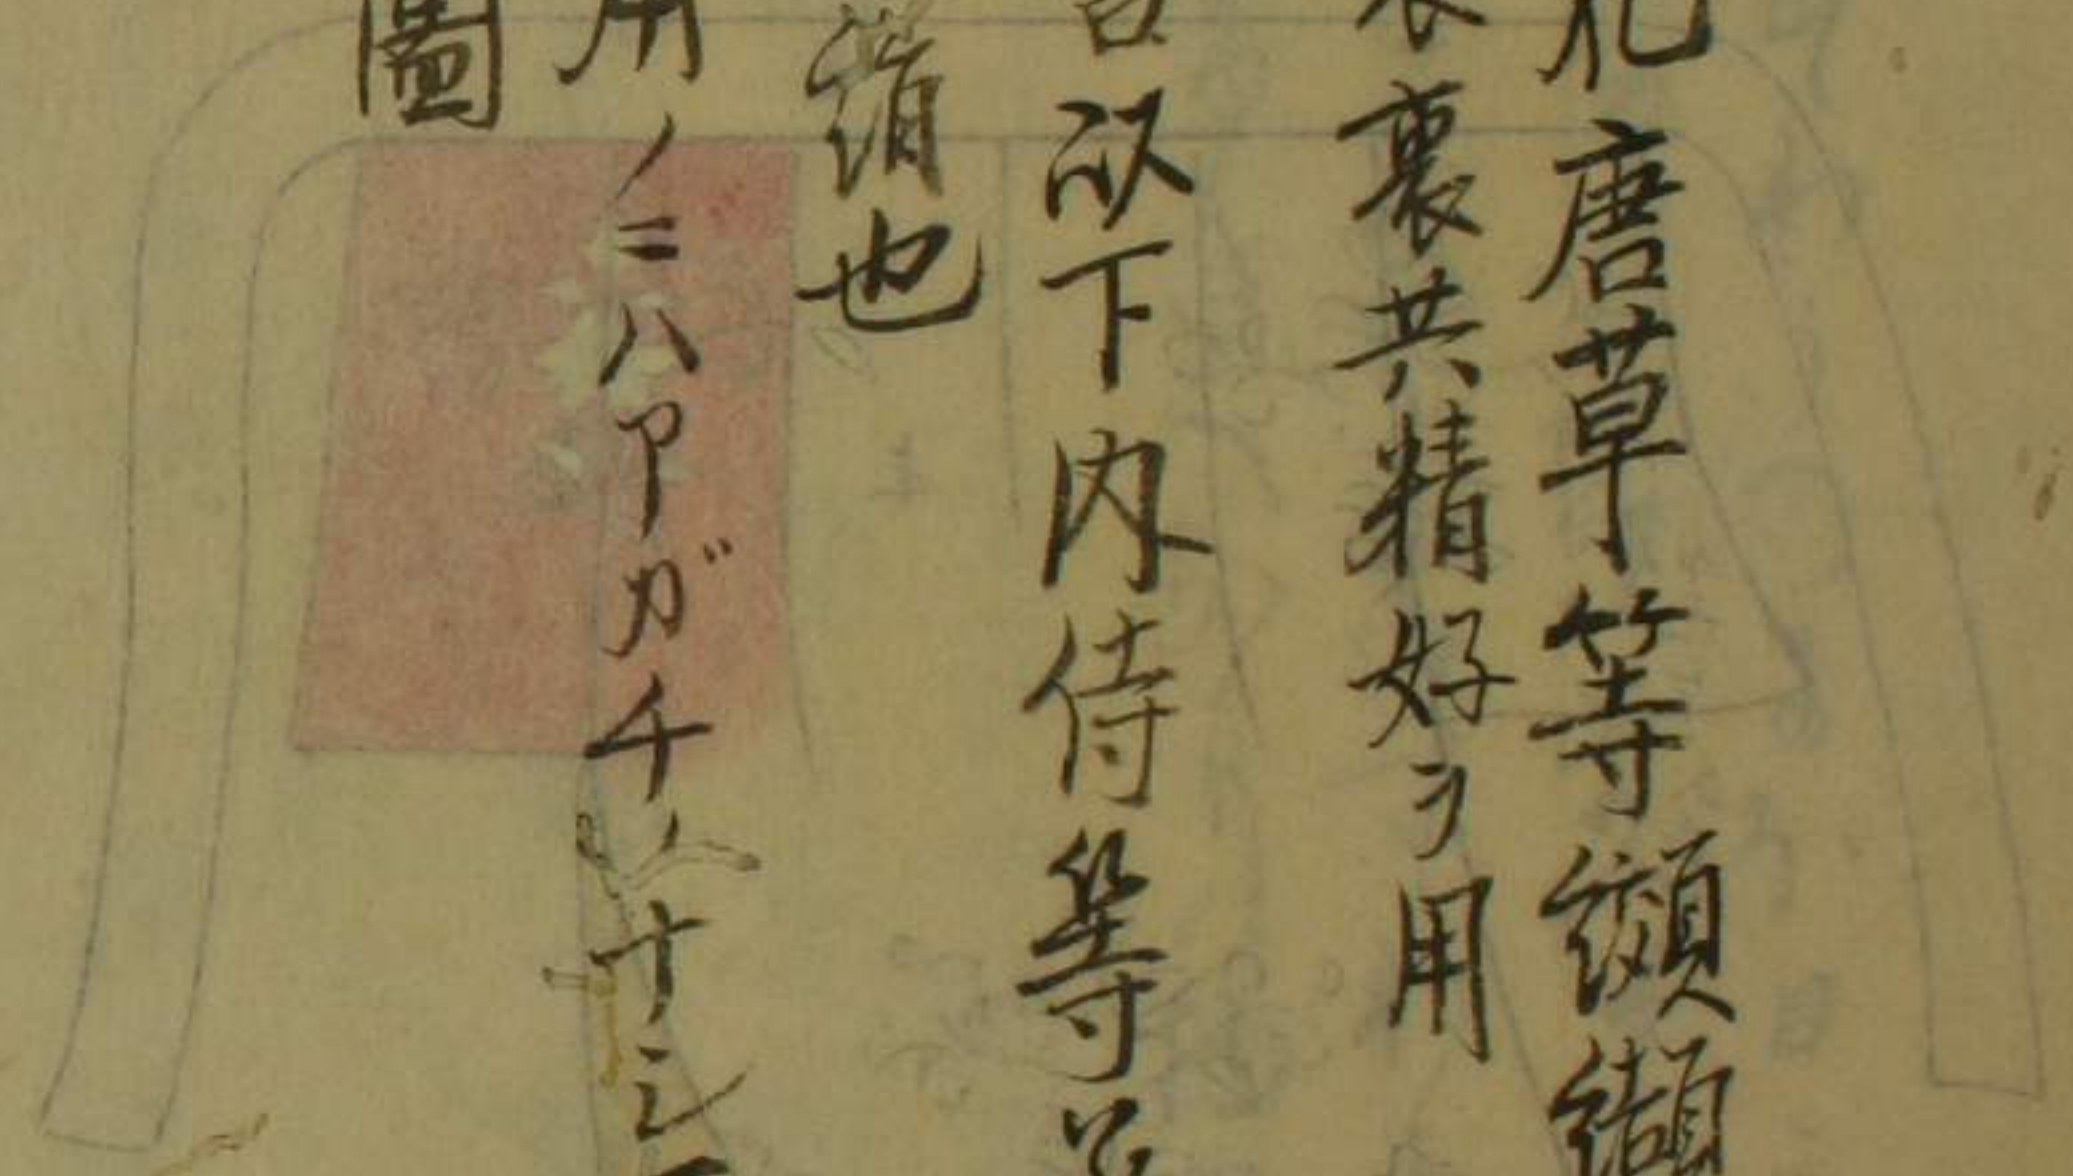 唐草等纐纈
裏共精好ヲ用
以下内侍等
絹也
用ノニハアガチナシ
圖